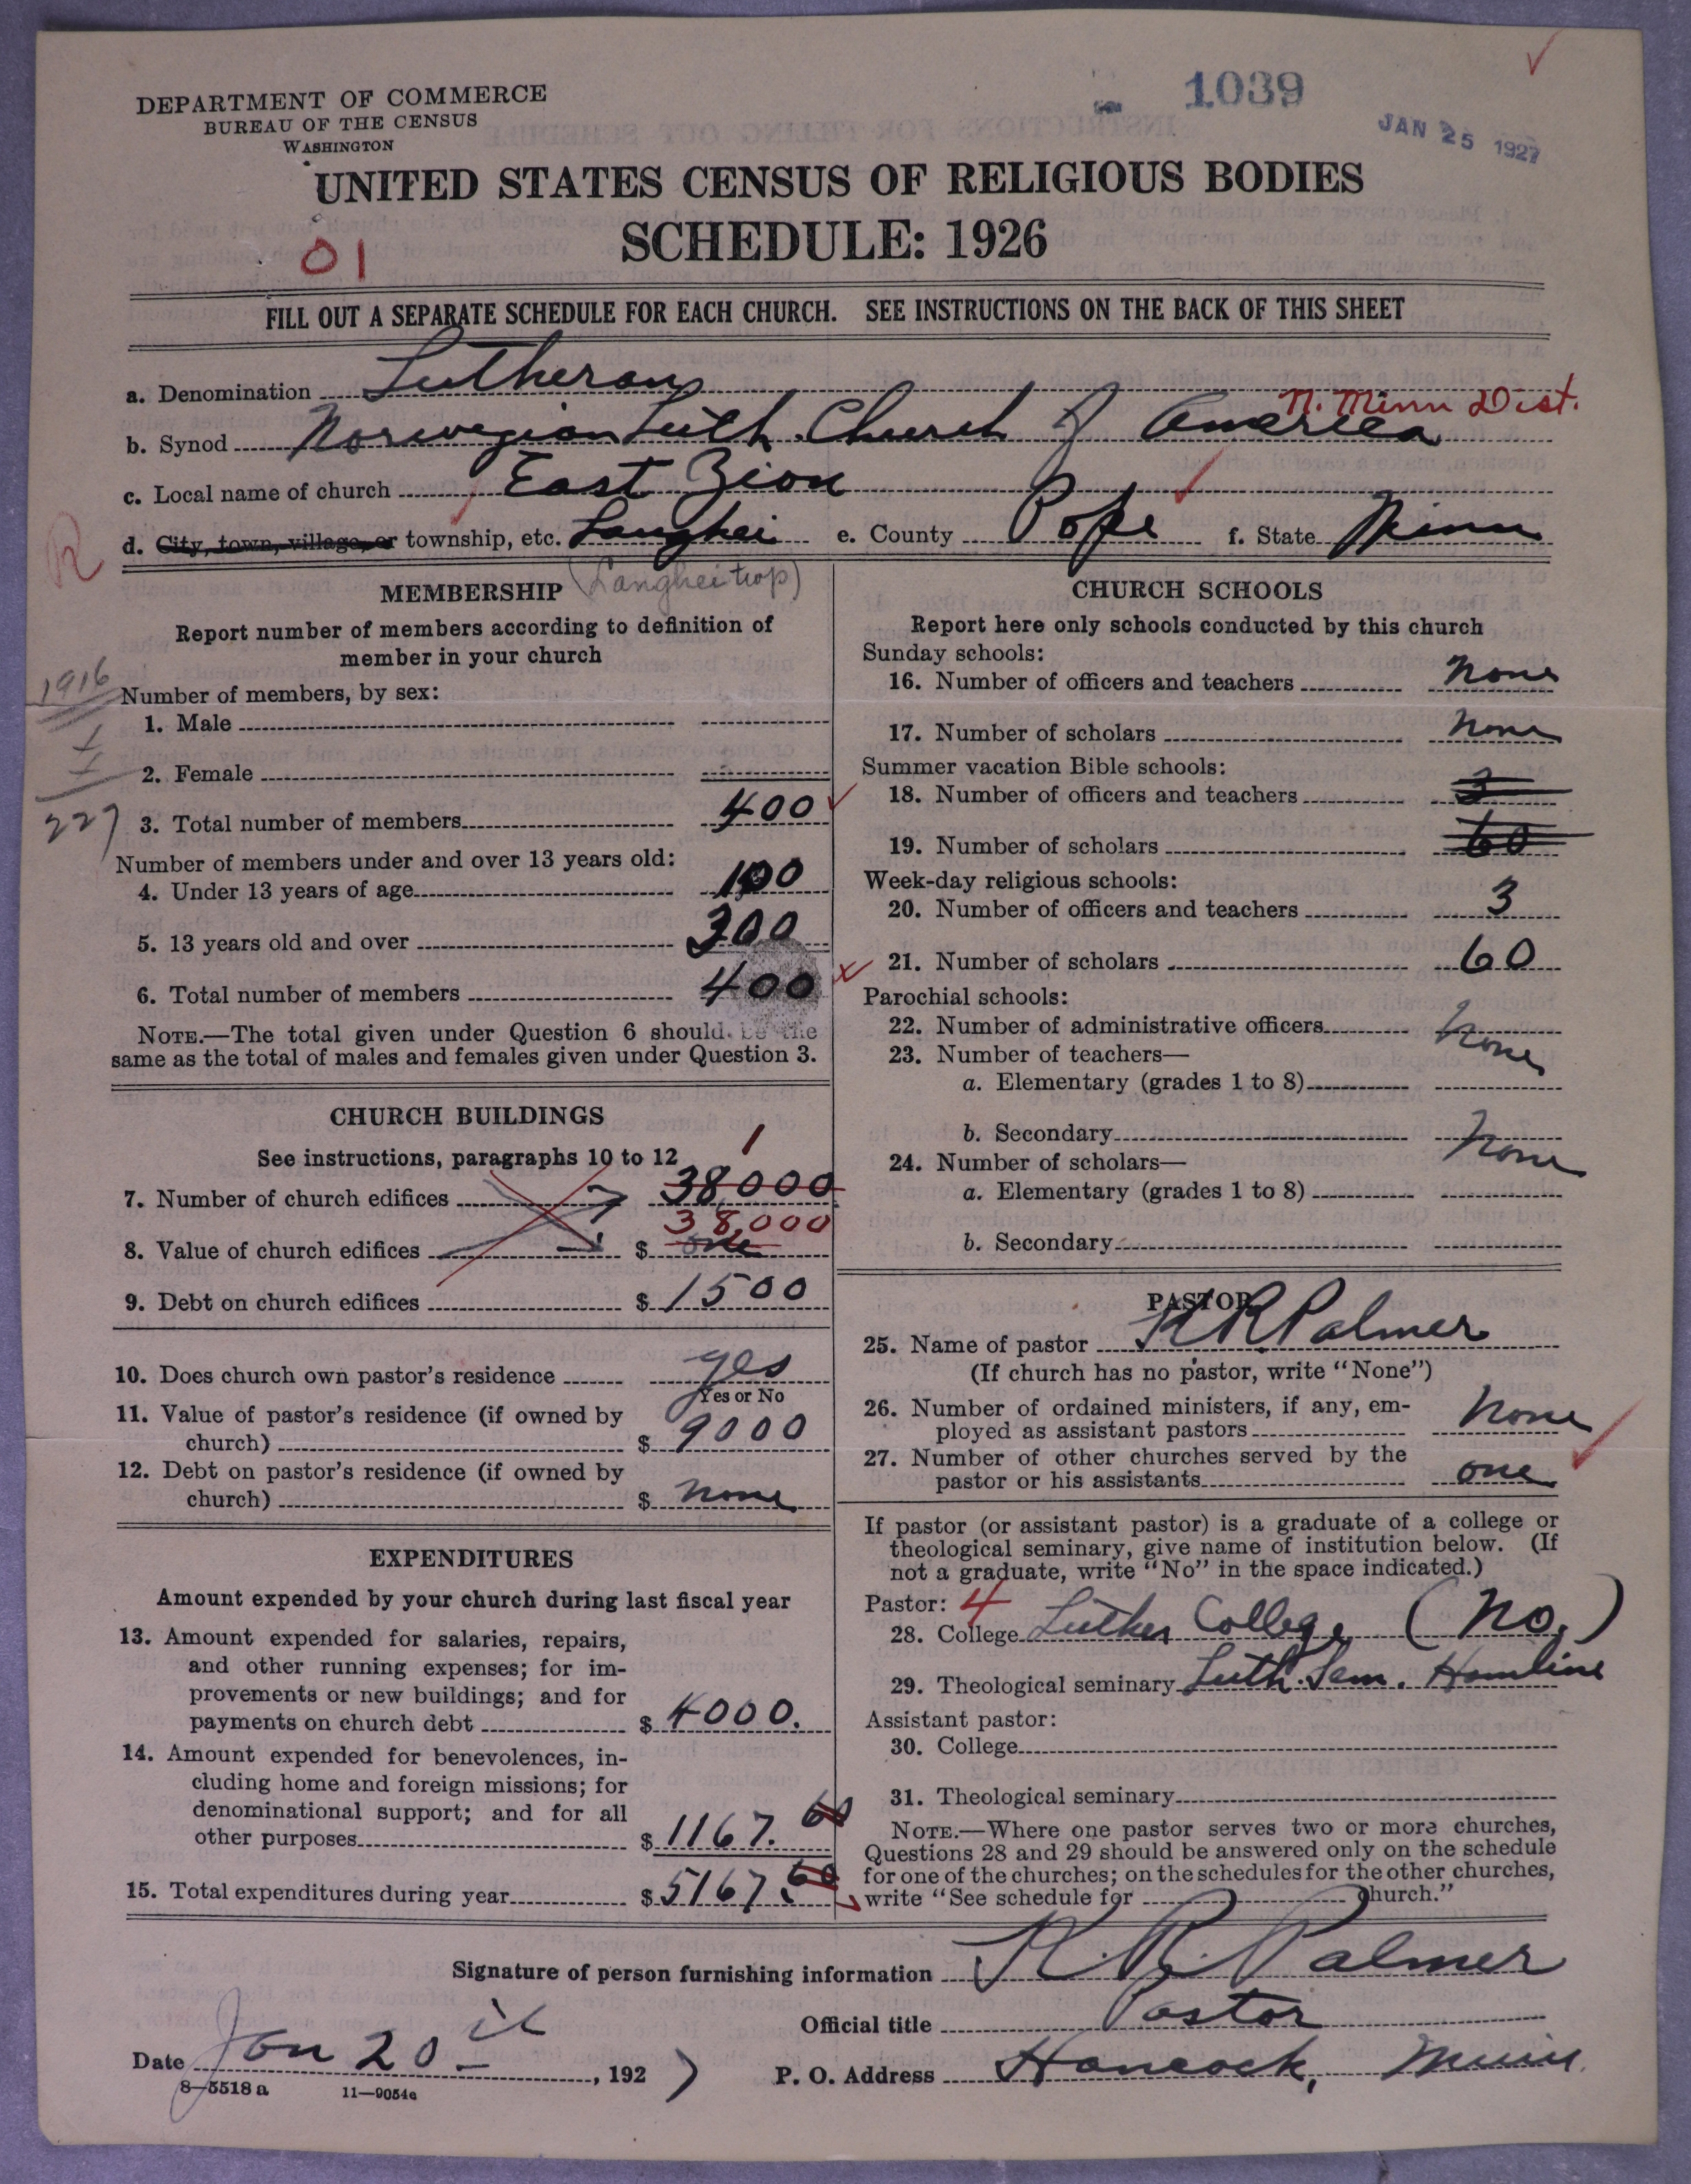 1039
JAN 25 1927
DEPARTMENT OF COMMERCE
BUREAU OF THE CENSUS
WASHINGTON
UNITED STATES CENSUS OF RELIGIOUS BODIES
SCHEDULE: 1926
01
FILL OUT A SEPARATE SCHEDULE FOR EACH CHURCH. SEE INSTRUCTIONS ON THE BACK OF THIS SHEET
a. Denomination Lutheran
N. Minn Dist.
b. Synod Norwegian Luth. Church of America
c. Local name of church East Zion
R
d. City, town, village, or township, etc. Langhei e. County Pope f. State Minn
(Langhei twp)
MEMBERSHIP
Report number of members according to definition of
member in your church
1916
Number of members, by sex:
1. Male
2. Female
227
3. Total number of members 400
Number of members under and over 13 years old:
4. Under 13 years of age 100
5. 13 years old and over 300
6. Total number of members 400
NOTE.—The total given under Question 6 should be the
same as the total of males and females given under Question 3.
CHURCH BUILDINGS
See instructions, paragraphs 10 to 12
1
7. Number of church edifices 38000
38,000
8. Value of church edifices $ one
9. Debt on church edifices $ 1500
10. Does church own pastor's residence yes
Yes or No
11. Value of pastor's residence (if owned by
church) $ 9000
12. Debt on pastor's residence (if owned by
church) $ none
EXPENDITURES
Amount expended by your church during last fiscal year
13. Amount expended for salaries, repairs,
and other running expenses; for im-
provements or new buildings; and for
payments on church debt $ 4000.
14. Amount expended for benevolences, in-
cluding home and foreign missions; for
denominational support; and for all
other purposes $ 1167.60
15. Total expenditures during year $ 5167.60
CHURCH SCHOOLS
Report here only schools conducted by this church
Sunday schools:
16. Number of officers and teachers none
17. Number of scholars none
Summer vacation Bible schools:
18. Number of officers and teachers 3
19. Number of scholars 60
Week-day religious schools:
20. Number of officers and teachers 3
21. Number of scholars 60
Parochial schools:
22. Number of administrative officers none
23. Number of teachers—
a. Elementary (grades 1 to 8)
b. Secondary none
24. Number of scholars—
a. Elementary (grades 1 to 8)
b. Secondary
PASTOR
25. Name of pastor K R Palmer
(If church has no pastor, write "None")
26. Number of ordained ministers, if any, em-
ployed as assistant pastors none
27. Number of other churches served by the
pastor or his assistants one
If pastor (or assistant pastor) is a graduate of a college or
theological seminary, give name of institution below. (If
not a graduate, write "No" in the space indicated.)
Pastor: 4
28. College Luther College (No.)
29. Theological seminary Luth. Sem. Hamline
Assistant pastor:
30. College
31. Theological seminary
NOTE.—Where one pastor serves two or more churches,
Questions 28 and 29 should be answered only on the schedule
for one of the churches; on the schedules for the other churches,
write "See schedule for church."
Signature of person furnishing information K. R. Palmer
Official title Pastor
Date Jan 20 , 1927
P. O. Address Hancock, Minn.
8-5518 a 11—9054a